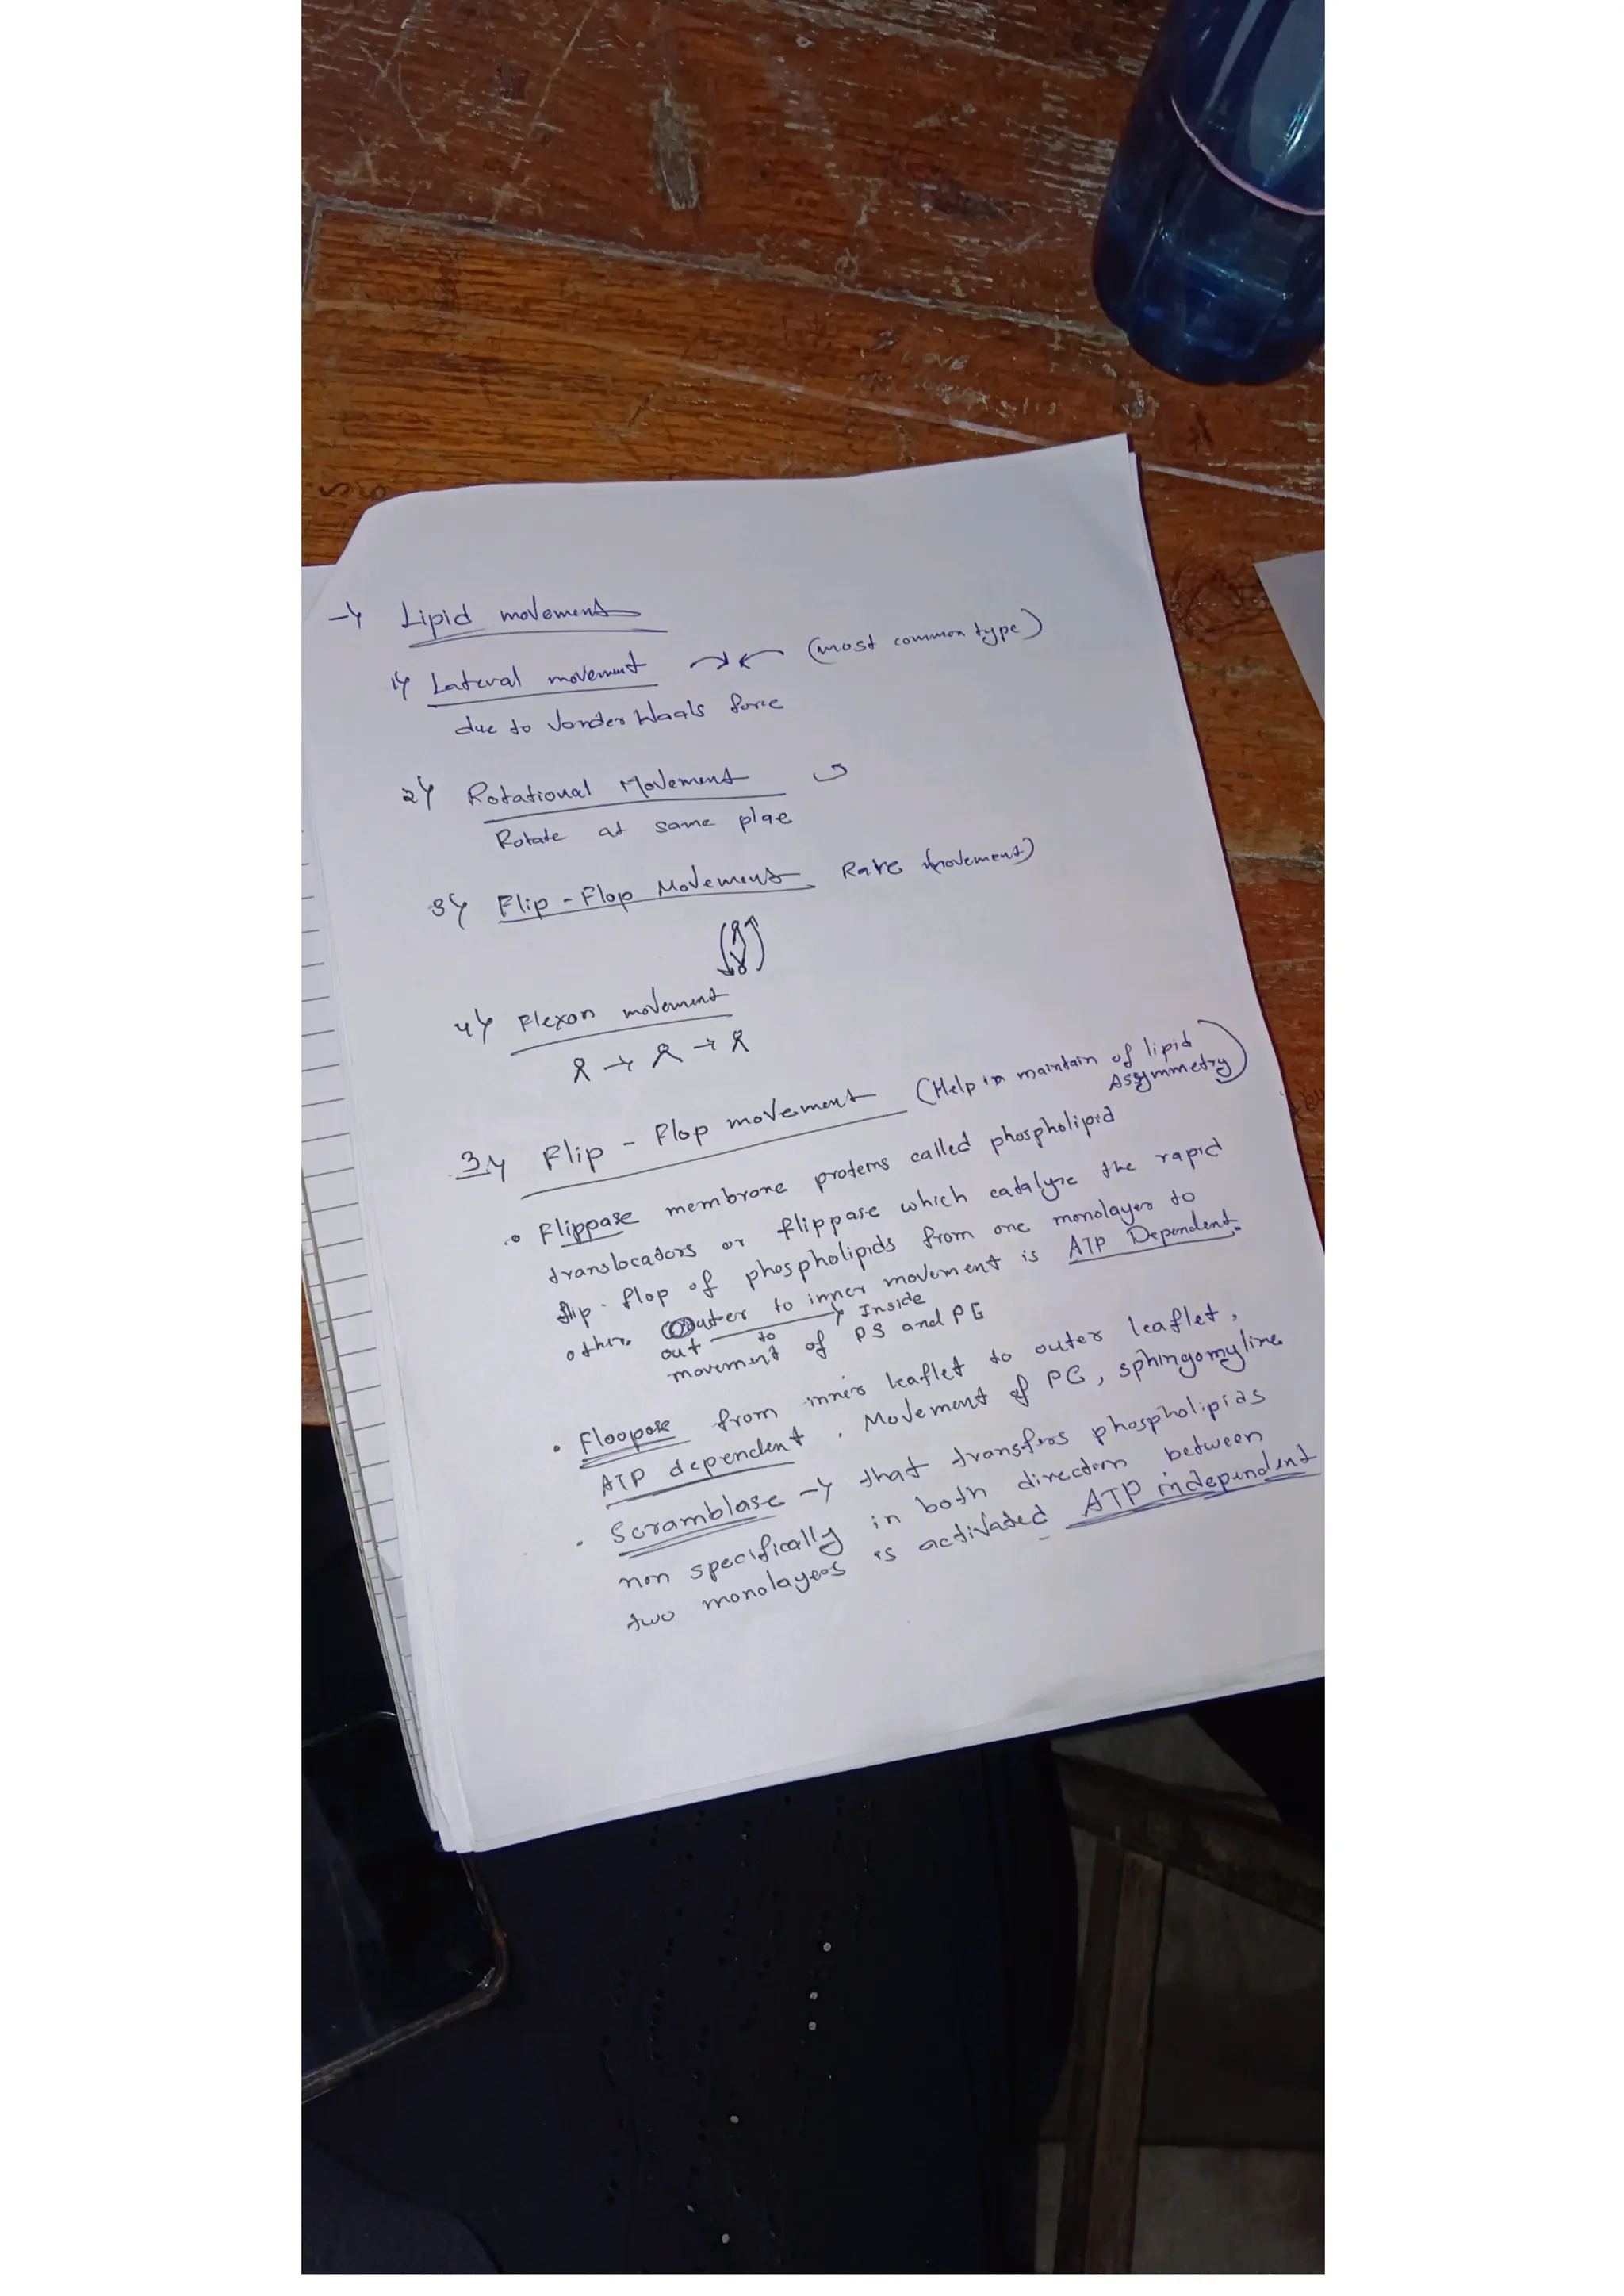 → Lipid movement
1) Lateral movement (most common type)
due to Vander Waals force
2) Rotational Movement
Rotate at same plae
3) Flip - Flop Movement Rare (movement)
4) Flexon movement
3) Flip - Flop movement (Help in maintain of lipid
Assymmetry)
• Flippase membrane proteins called phospholipid
translocators or flippase which catalyse the rapid
flip - flop of phospholipids from one monolayer to
other. Outer to inner movement is ATP Dependent.
out to Inside
movement of PS and PE
• Floopase from inner leaflet to outer leaflet,
ATP dependent. Movement of PC, sphingomyline
• Scramblase → that transfers phospholipids
non specifically in both direction between
two monolayers is activated ATP independent